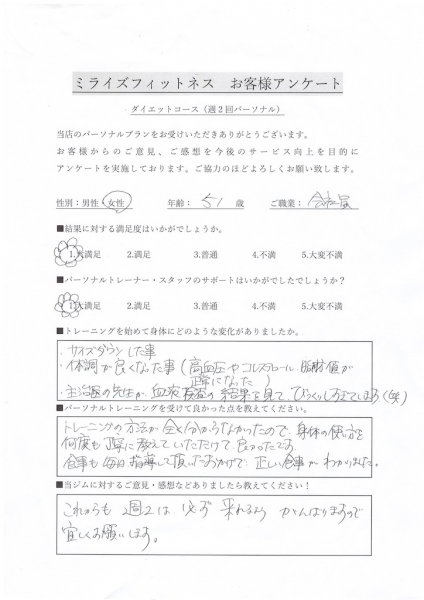 ミライズフィットネス お客様アンケート
ダイエットコース（週２回パーソナル）
当店のパーソナルプランをお受けいただきありがとうございます。
お客様からのご意見、ご感想を今後のサービス向上を目的に
アンケートを実施しております。ご協力のほどよろしくお願い致します。
性別：男性・女性 年齢： 51 歳 ご職業： 会社員
■結果に対する満足度はいかがでしょうか。
1.大満足 2.満足 3.普通 4.不満 5.大変不満
■パーソナルトレーナー・スタッフのサポートはいかがでしたでしょうか？
1.大満足 2.満足 3.普通 4.不満 5.大変不満
■トレーニングを始めて身体にどのような変化がありましたか。
・サイズダウンした事
・体調が良くなった事（高血圧やコレステロール 脂肪値が
正常になった）
・主治医の先生が、血液検査の結果を見て、びっくりしています（笑）
■パーソナルトレーニングを受けて良かった点を教えてください。
トレーニングの方法が全く分からなかったので、身体の使い方を
何度も丁寧に教えていただけて良かったです。
食事も毎日指導して頂いたおかげで正しい食事がわかりました。
■当ジムに対するご意見・感想などありましたら教えてください！
これからも 週2は 必ず 来れるよう がんばりますので
宜しくお願いします。